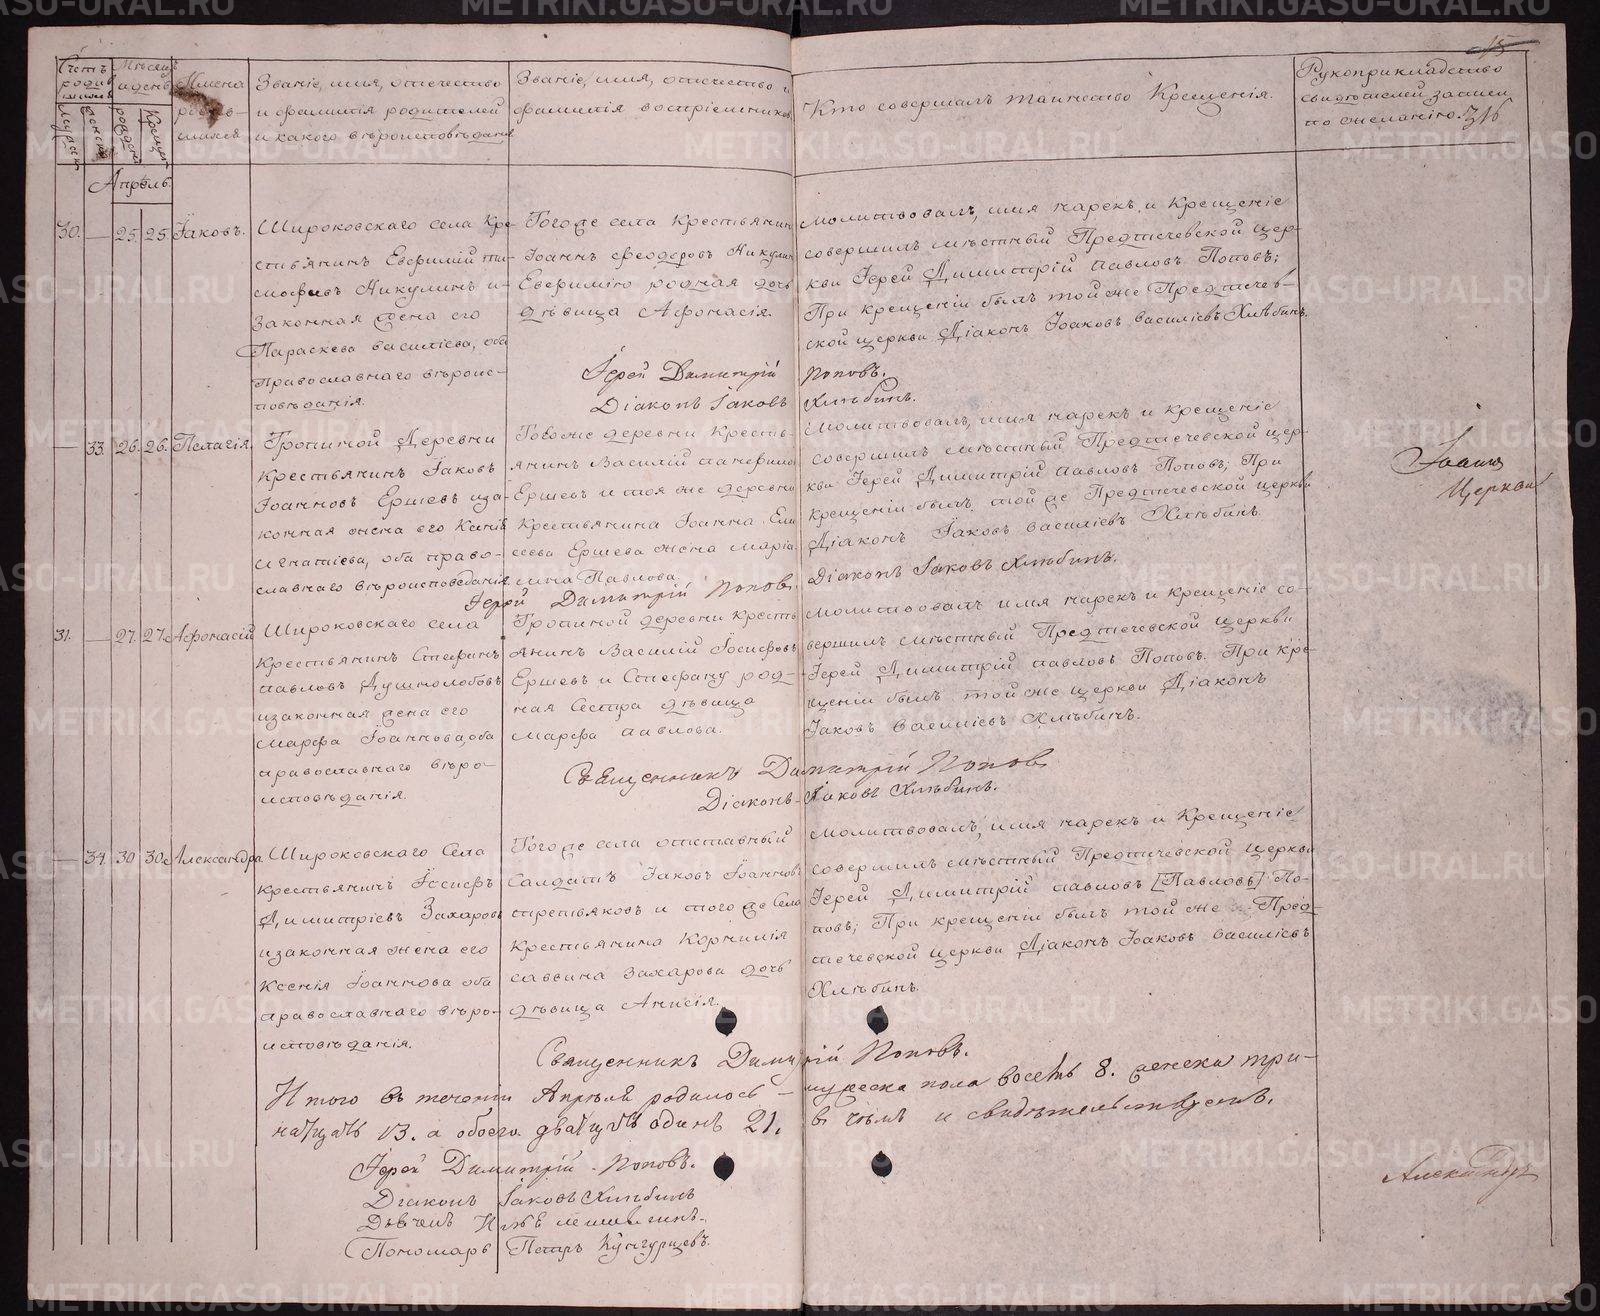 15
Счетъ родившихся
Мужеска
Женска
Мѣсяцъ и день
рожден
Крещен
Имена родив-
шихся
Званіе, имя, отечество
и фамилія родителей
и какого вѣроисповѣданія
Званіе, имя, отечество и
фамилія воспріемников
Кто совершалъ таинство Крещенія.
Рукоприкладство
свидѣтелей записи
по желанію.
316
Апрѣль.
30. — 25. 25 Іаковъ.
Широковскаго села Кре-
стьянинъ Евфимій Ти-
мофѣевъ Никулинъ и
Законная жена его
Параскева Василіева, оба
Православнаго вѣроис-
повѣданія.
Тогоже села Крестьянин
Іоаннъ Феодоровъ Никулин
Евфимію родная дочь
дѣвица Афонасія.
Молитвовалъ, имя нарекъ, и Крещеніе
совершилъ мѣстный Предтечевской цер-
кви Іерей Димитрій Павловъ Поповъ;
При крещеніи былъ той же Предтечев-
ской церкви Діаконъ Іоаковъ Василіевъ Хлѣбинъ.
Іерей Димитрій Поповъ.
Діаконъ Іаковъ Хлѣбинъ.
— 33. 26. 26. Пелагія.
Тропиной Деревни
Крестьянинъ Іаковъ
Іоанновъ Ершевъ и за-
конная жена его Ксенія
Игнатіева, оба право-
славнаго вѣроисповѣданія
Тогоже деревни Кресть-
янинъ Василій Панфилов
Ершевъ и тоя же деревни
Крестьянина Іоанна Ели
сеева Ершева жена Марія
Павлова.
Молитвовалъ, имя нарекъ и крещеніе
совершилъ мѣстный Предтечевской цер-
кви Іерей Димитрій Павловъ Поповъ; При
крещеніи былъ той же Предтечевской церкви
Діаконъ Іаковъ Василіевъ Хлѣбинъ.
Іерей Димитрій Поповъ.
Діаконъ Іаковъ Хлѣбинъ.
Іоаннъ
Церкви
31. — 27. 27. Афонасій
Широковскаго села
Крестьянинъ Стефанъ
Павловъ Душнолобовъ
и законная жена его
Марфа Іоаннова, оба
православнаго вѣро-
исповѣданія.
Тропиной деревни Кресть
янинъ Василій Іосифовъ
Ершевъ и Стефану род-
ная Сестра дѣвица
Марфа Павлова.
Молитвовалъ имя нарекъ и крещеніе со-
вершилъ мѣстный Предтечевской церкви
Іерей Димитрій Павловъ Поповъ. При кре-
щеніи былъ той же церкви Діаконъ
Іаковъ Василіевъ Хлѣбинъ.
Священникъ Димитрій Поповъ
Діаконъ Іаковъ Хлѣбинъ.
— 34. 30 30. Александра
Широковскаго Села
крестьянинъ Іосифъ
Димитріевъ Захаровъ
и законная жена его
Ксенія Іоаннова оба
православнаго вѣро-
исповѣданія.
Тогоже села отставный
Салдатъ Іаковъ Іоаннов
Третьяковъ и того же Села
Крестьянина Корнилія
Саввина Захарова дочь
дѣвица Анисія.
Молитвовалъ, имя нарекъ и Крещеніе
совершилъ мѣстный Предтечевской церкви
Іерей Димитрій Павловъ [Павловъ] По-
повъ; При крещеніи былъ той же Пред-
течевской церкви Діаконъ Іоаковъ Василіевъ
Хлѣбинъ.
Священникъ Димитрій Поповъ.
Итого въ теченіи Апрѣля родилось — мужеска пола восемь 8. женска три-
натцать 13. а обоего двадцать одинъ 21. в чемъ и свидѣтельствуемъ.
Іерей Димитрій Поповъ.
Діаконъ Іаковъ Хлѣбинъ
Пономарь Петръ Кунгурцевъ.
Александръ